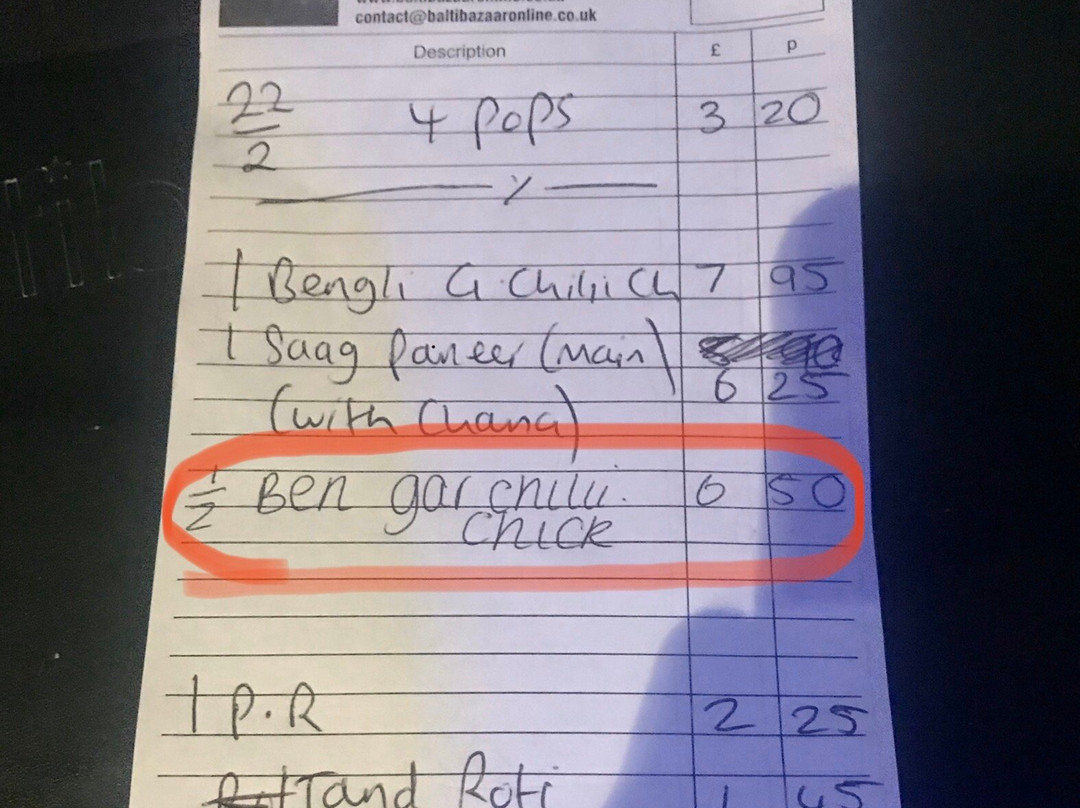 contact@baltibazaaronline.co.uk
Description £ p
22/2 4 Pops 3 20
1 Bengli G Chilli Ch 7 95
1 Saag Paneer (Main)
6 25
(with Chana)
1/2 Ben gar chilli. 6 50
CHICK
1 P.R 2 25
Tand Roti 1 45